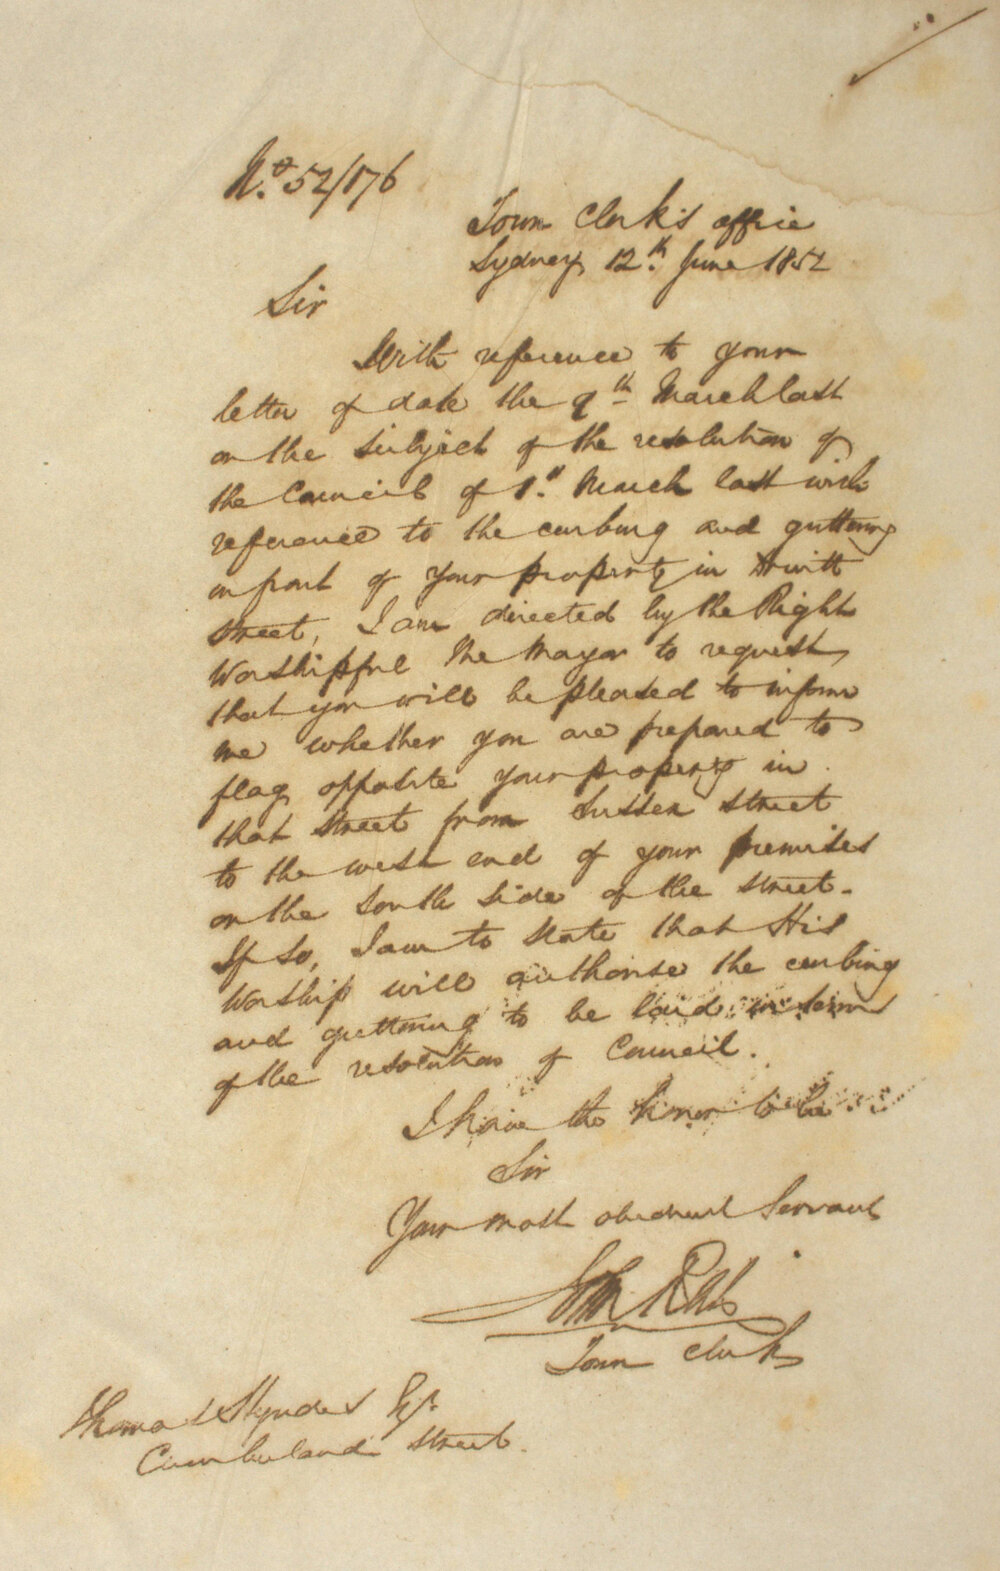 No. 52/176
Town Clerk's office
Sydney 12th. June 1852
Sir
With reference to your
letter of date the 9th March last
on the subject of the resolution of
the Council of 1st. March last with
reference to the curbing and guttering
in front of your property in
Street, I am directed by the Right
Worshipful the Mayor to request
that you will be pleased to inform
me whether you are prepared to
flag opposite your property in
that Street from Sussex Street
to the west end of your premises
on the South side of the street.
If so, I am to state that His
Worship will authorise the curbing
and guttering to be laid in terms
of the resolution of Council.
I have the honor to be
Sir
Your most obedient Servant
John
Town Clerk
Thomas Hyndes Esqr.
Cumberland Street.